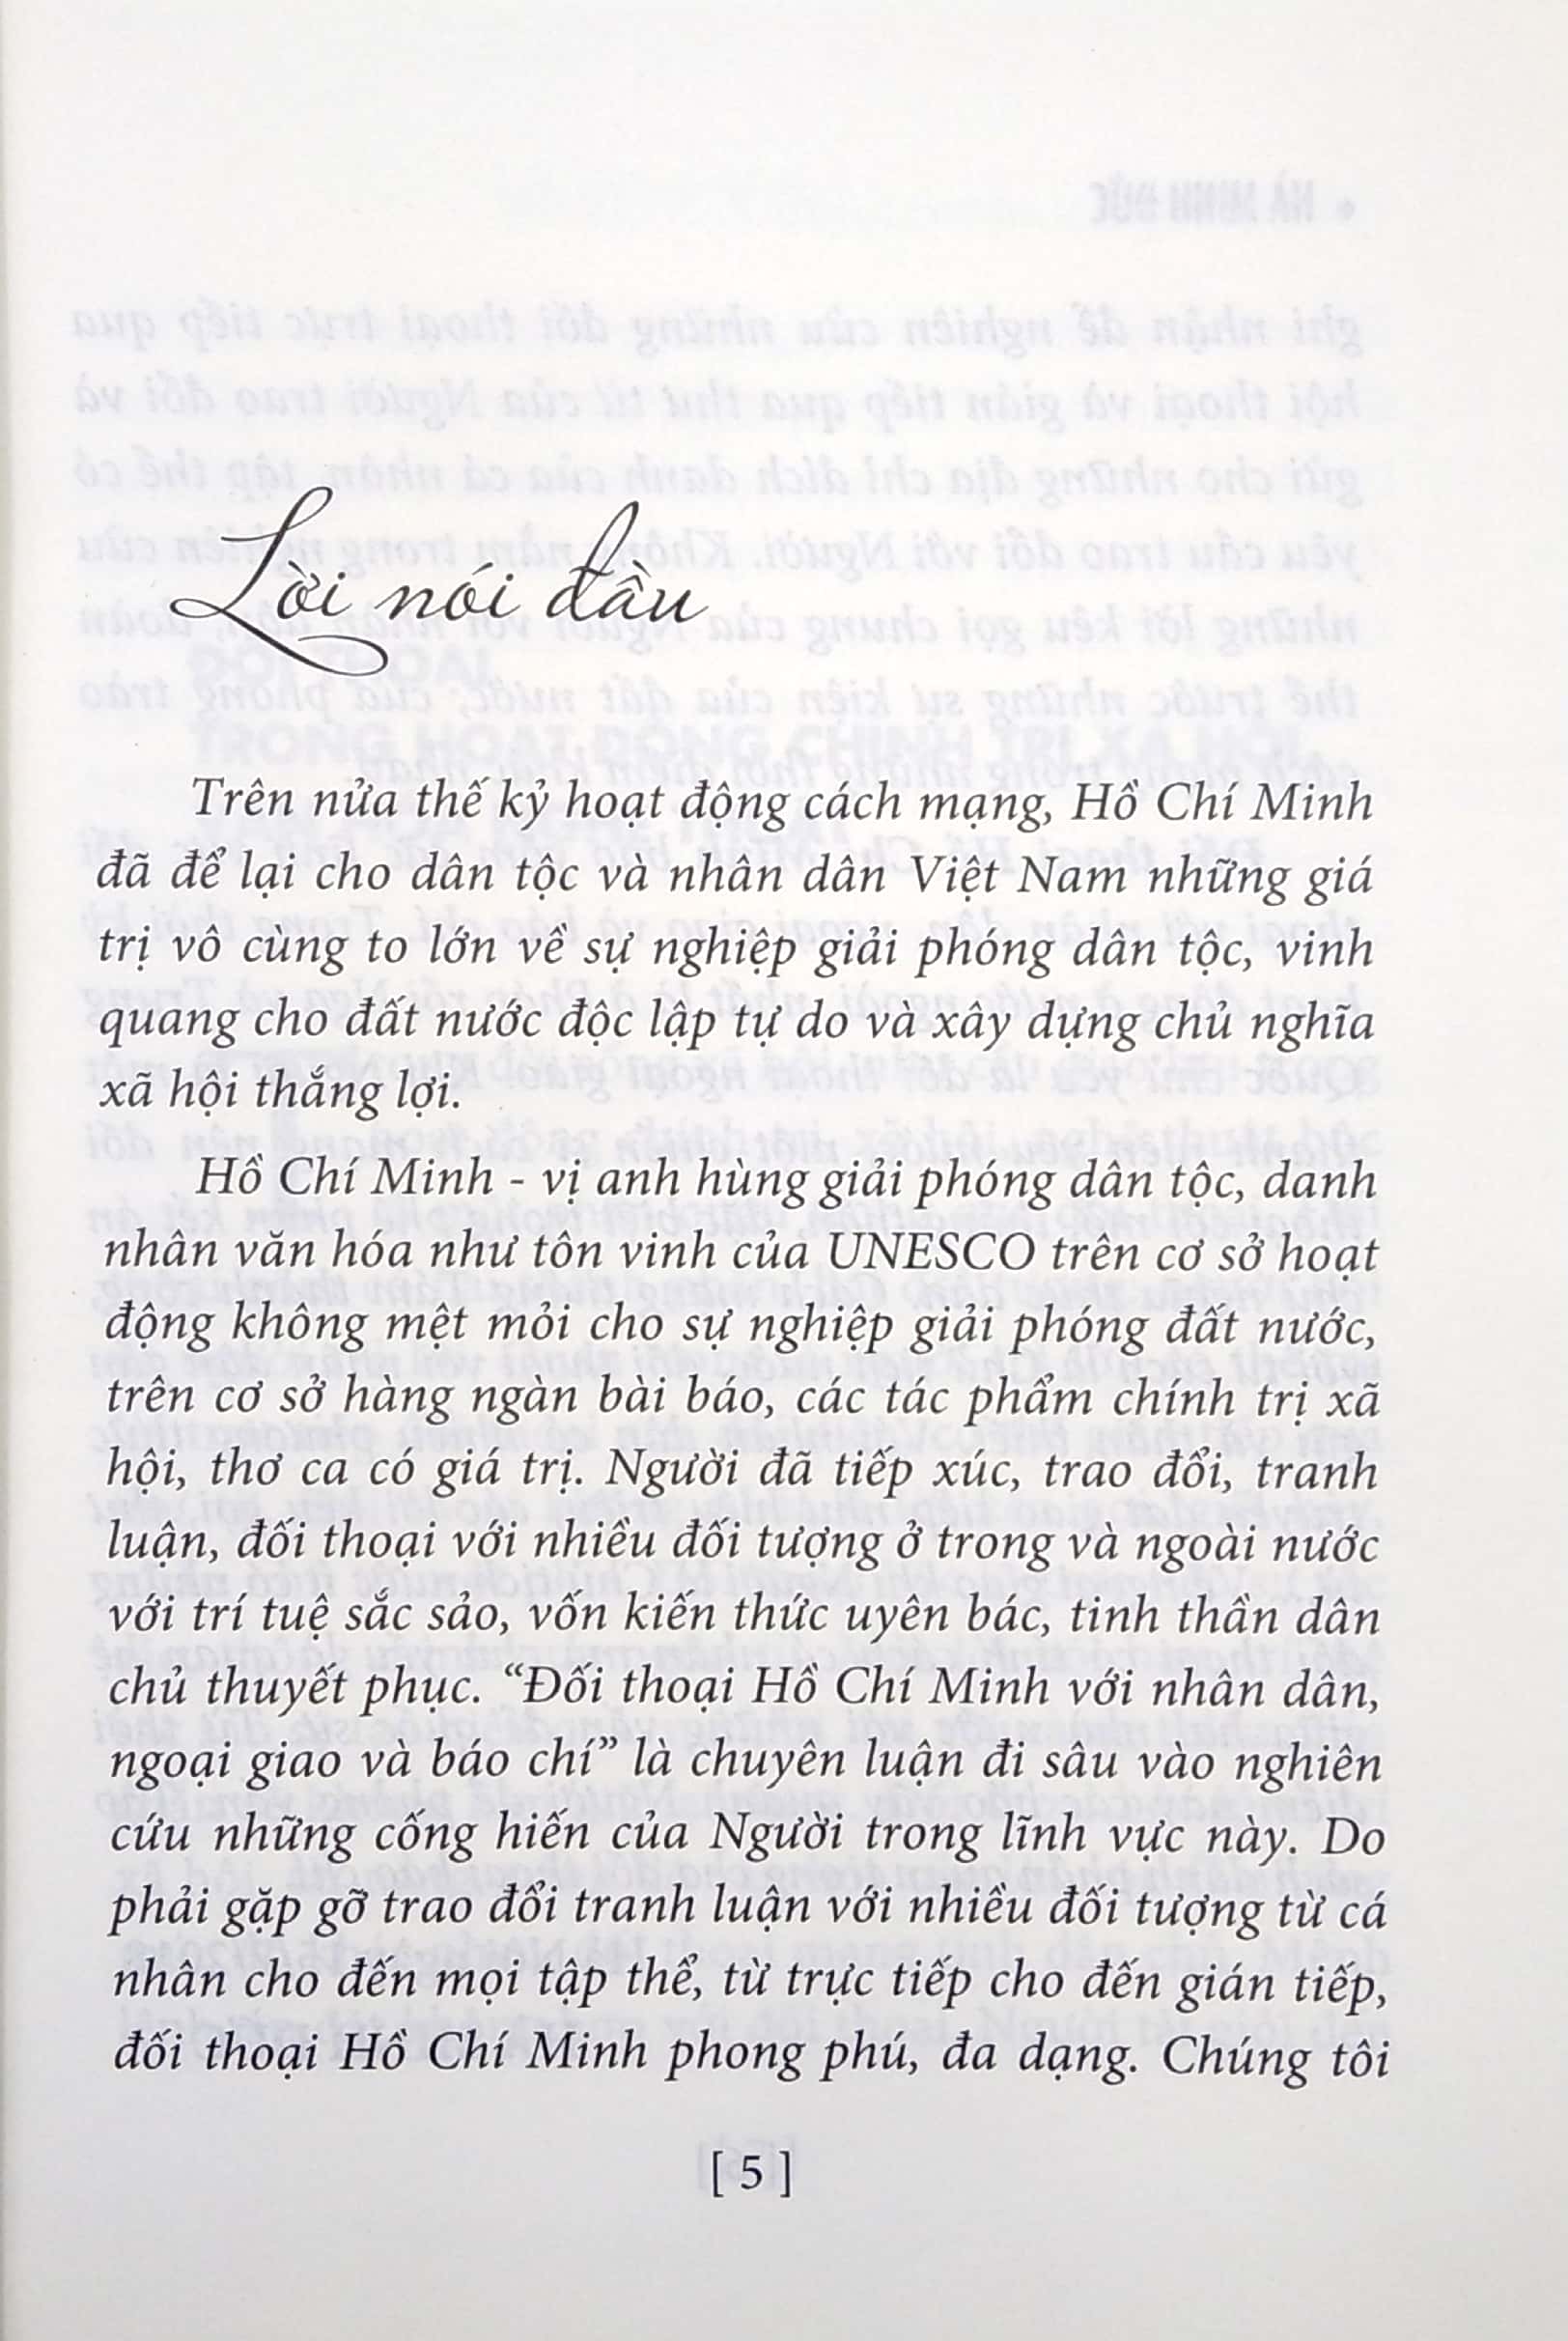 Lời nói đầu
Trên nửa thế kỷ hoạt động cách mạng, Hồ Chí Minh
đã để lại cho dân tộc và nhân dân Việt Nam những giá
trị vô cùng to lớn về sự nghiệp giải phóng dân tộc, vinh
quang cho đất nước độc lập tự do và xây dựng chủ nghĩa
xã hội thắng lợi.
Hồ Chí Minh - vị anh hùng giải phóng dân tộc, danh
nhân văn hóa như tôn vinh của UNESCO trên cơ sở hoạt
động không mệt mỏi cho sự nghiệp giải phóng đất nước,
trên cơ sở hàng ngàn bài báo, các tác phẩm chính trị xã
hội, thơ ca có giá trị. Người đã tiếp xúc, trao đổi, tranh
luận, đối thoại với nhiều đối tượng ở trong và ngoài nước
với trí tuệ sắc sảo, vốn kiến thức uyên bác, tinh thần dân
chủ thuyết phục. “Đối thoại Hồ Chí Minh với nhân dân,
ngoại giao và báo chí” là chuyên luận đi sâu vào nghiên
cứu những cống hiến của Người trong lĩnh vực này. Do
phải gặp gỡ trao đổi tranh luận với nhiều đối tượng từ cá
nhân cho đến mọi tập thể, từ trực tiếp cho đến gián tiếp,
đối thoại Hồ Chí Minh phong phú, đa dạng. Chúng tôi
[ 5 ]